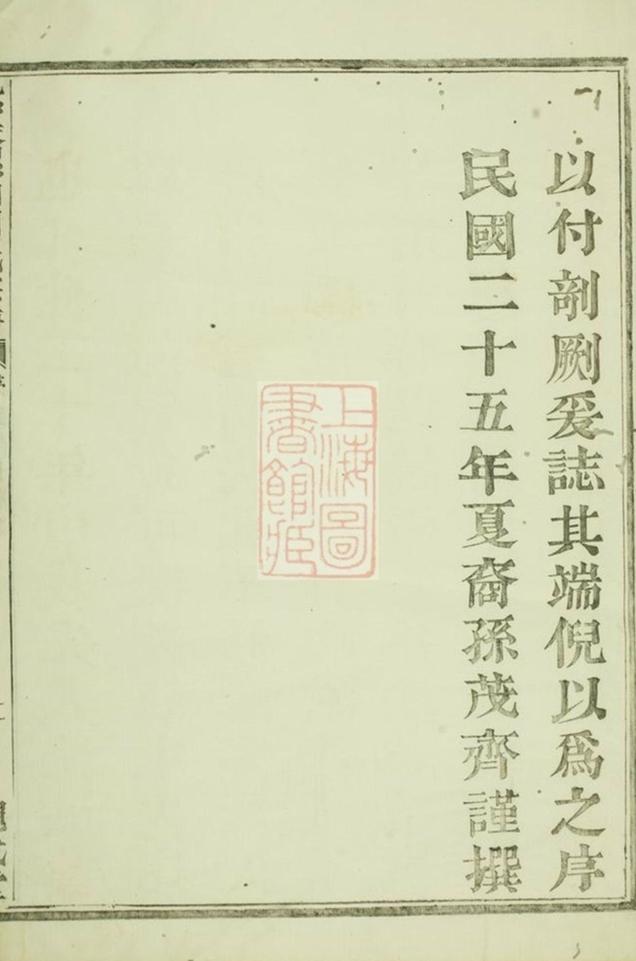 以付剞劂爰誌其端倪以爲之序
民國二十五年夏裔孫茂齊謹撰
上海圖書館藏